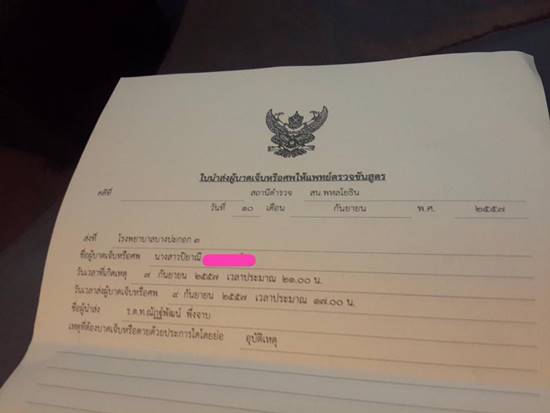 ใบนำส่งผู้บาดเจ็บหรือศพให้แพทย์ตรวจชันสูตร
คดีที่ สถานีตำรวจ สน.พหลโยธิน
วันที่ ๑๐ เดือน กันยายน พ.ศ. ๒๕๕๗
ส่งที่ โรงพยาบาลบางปะกอก ๓
ชื่อผู้บาดเจ็บหรือศพ นางสาวปิยาณี
วันเวลาที่เกิดเหตุ ๗ กันยายน ๒๕๕๗ เวลาประมาณ ๒๑.๐๐ น.
วันเวลาส่งผู้บาดเจ็บหรือศพ ๙ กันยายน ๒๕๕๗ เวลาประมาณ ๑๗.๐๐ น.
ชื่อผู้นำส่ง ร.ต.ท.ณัฏฐ์พัฒน์ พึ่งจาบ
เหตุที่ต้องบาดเจ็บหรือตายด้วยประการใดโดยย่อ อุบัติเหตุ